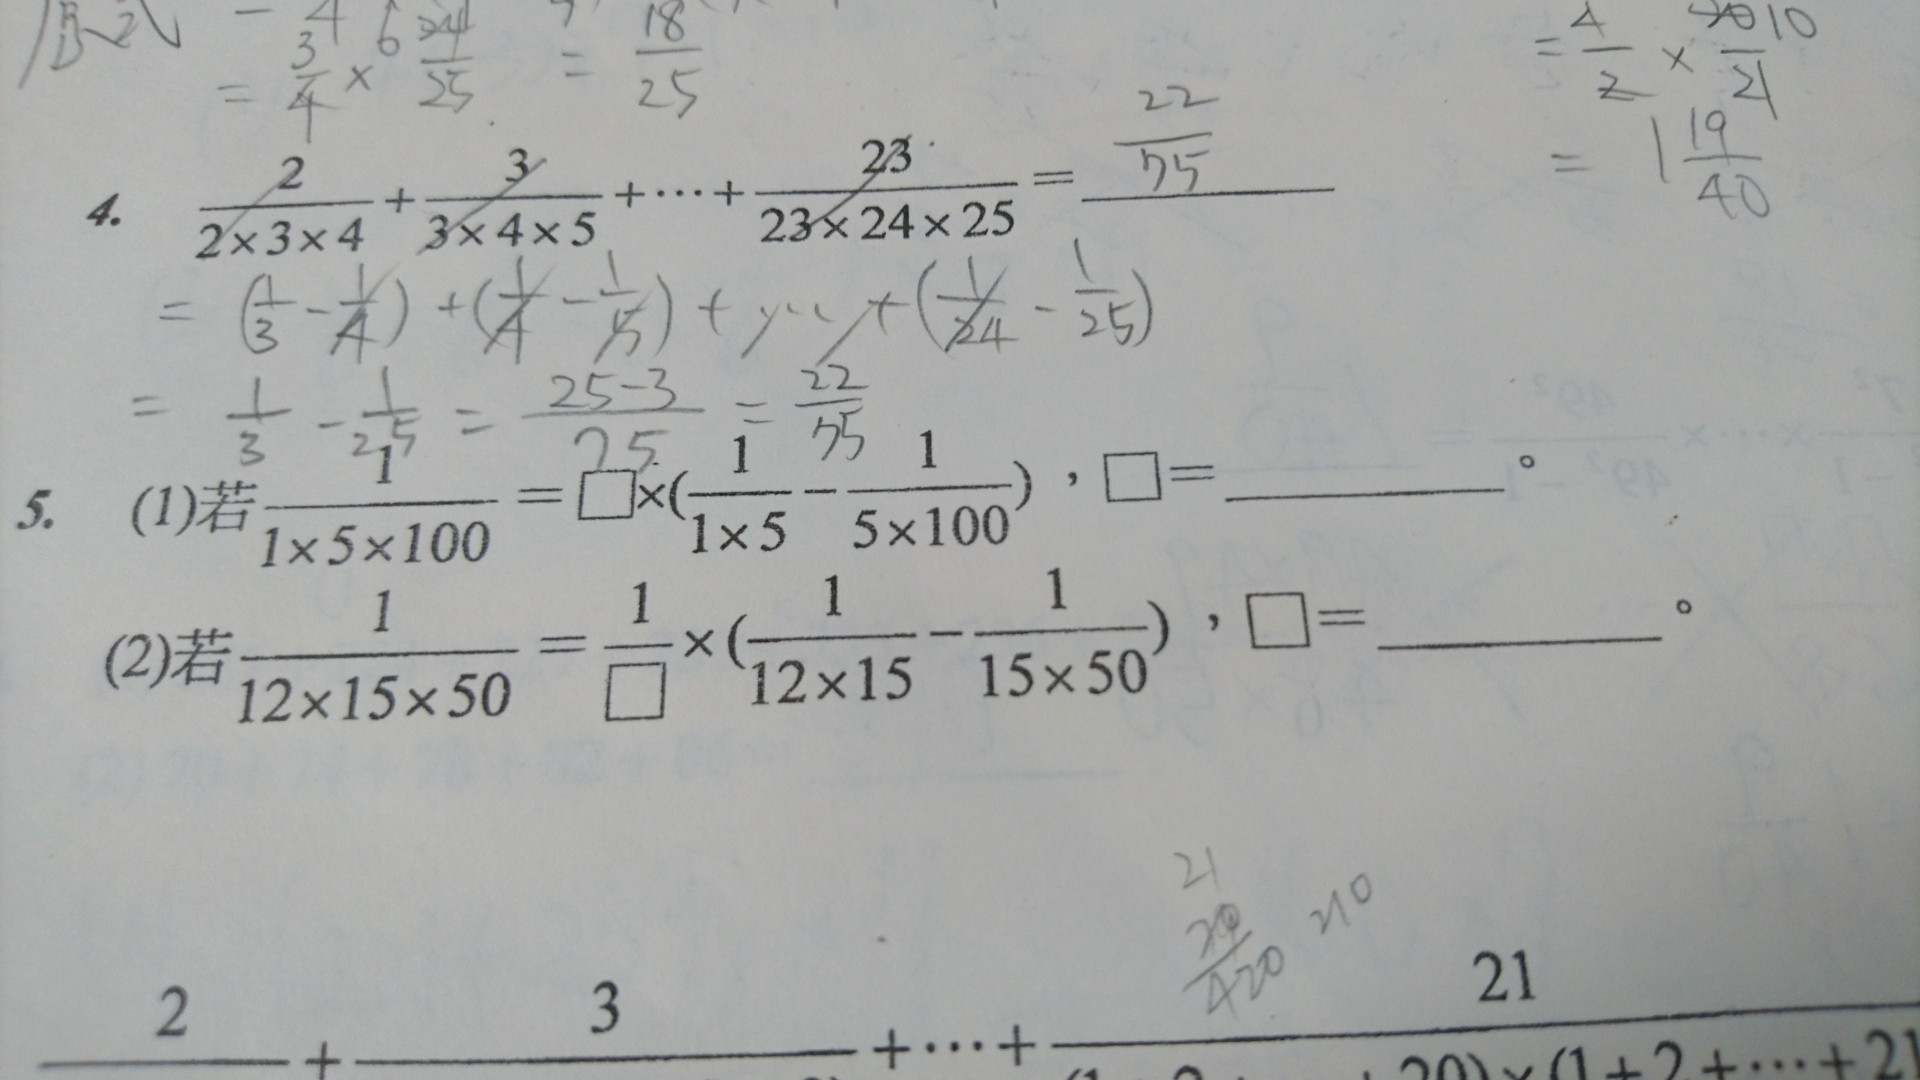 原式 = 3/4 × 24/25 6 = 18/25
= 4/2 × 20/21 10
= 1 19/40
4. 2/(2×3×4) + 3/(3×4×5) +⋯+ 23/(23×24×25) = 22/75
= (1/3 - 1/4) + (1/4 - 1/5) + ⋯ + (1/24 - 1/25)
= 1/3 - 1/25 = (25-3)/75 = 22/75
5. (1)若 1/(1×5×100) = □×(1/(1×5) - 1/(5×100)),□=______。
(2)若 1/(12×15×50) = 1/□ ×(1/(12×15) - 1/(15×50)),□=______。
21
420 210
2 + 3 +⋯+ 21
20)×(1+2+⋯+21